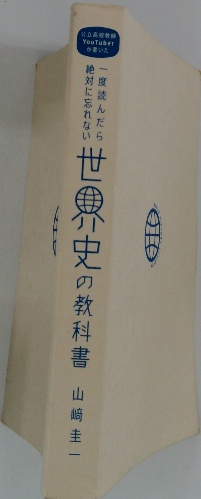 公立高校教師
YouTuber
が書いた
一度読んだら
絶対に忘れない
世界史の教科書
山﨑圭一